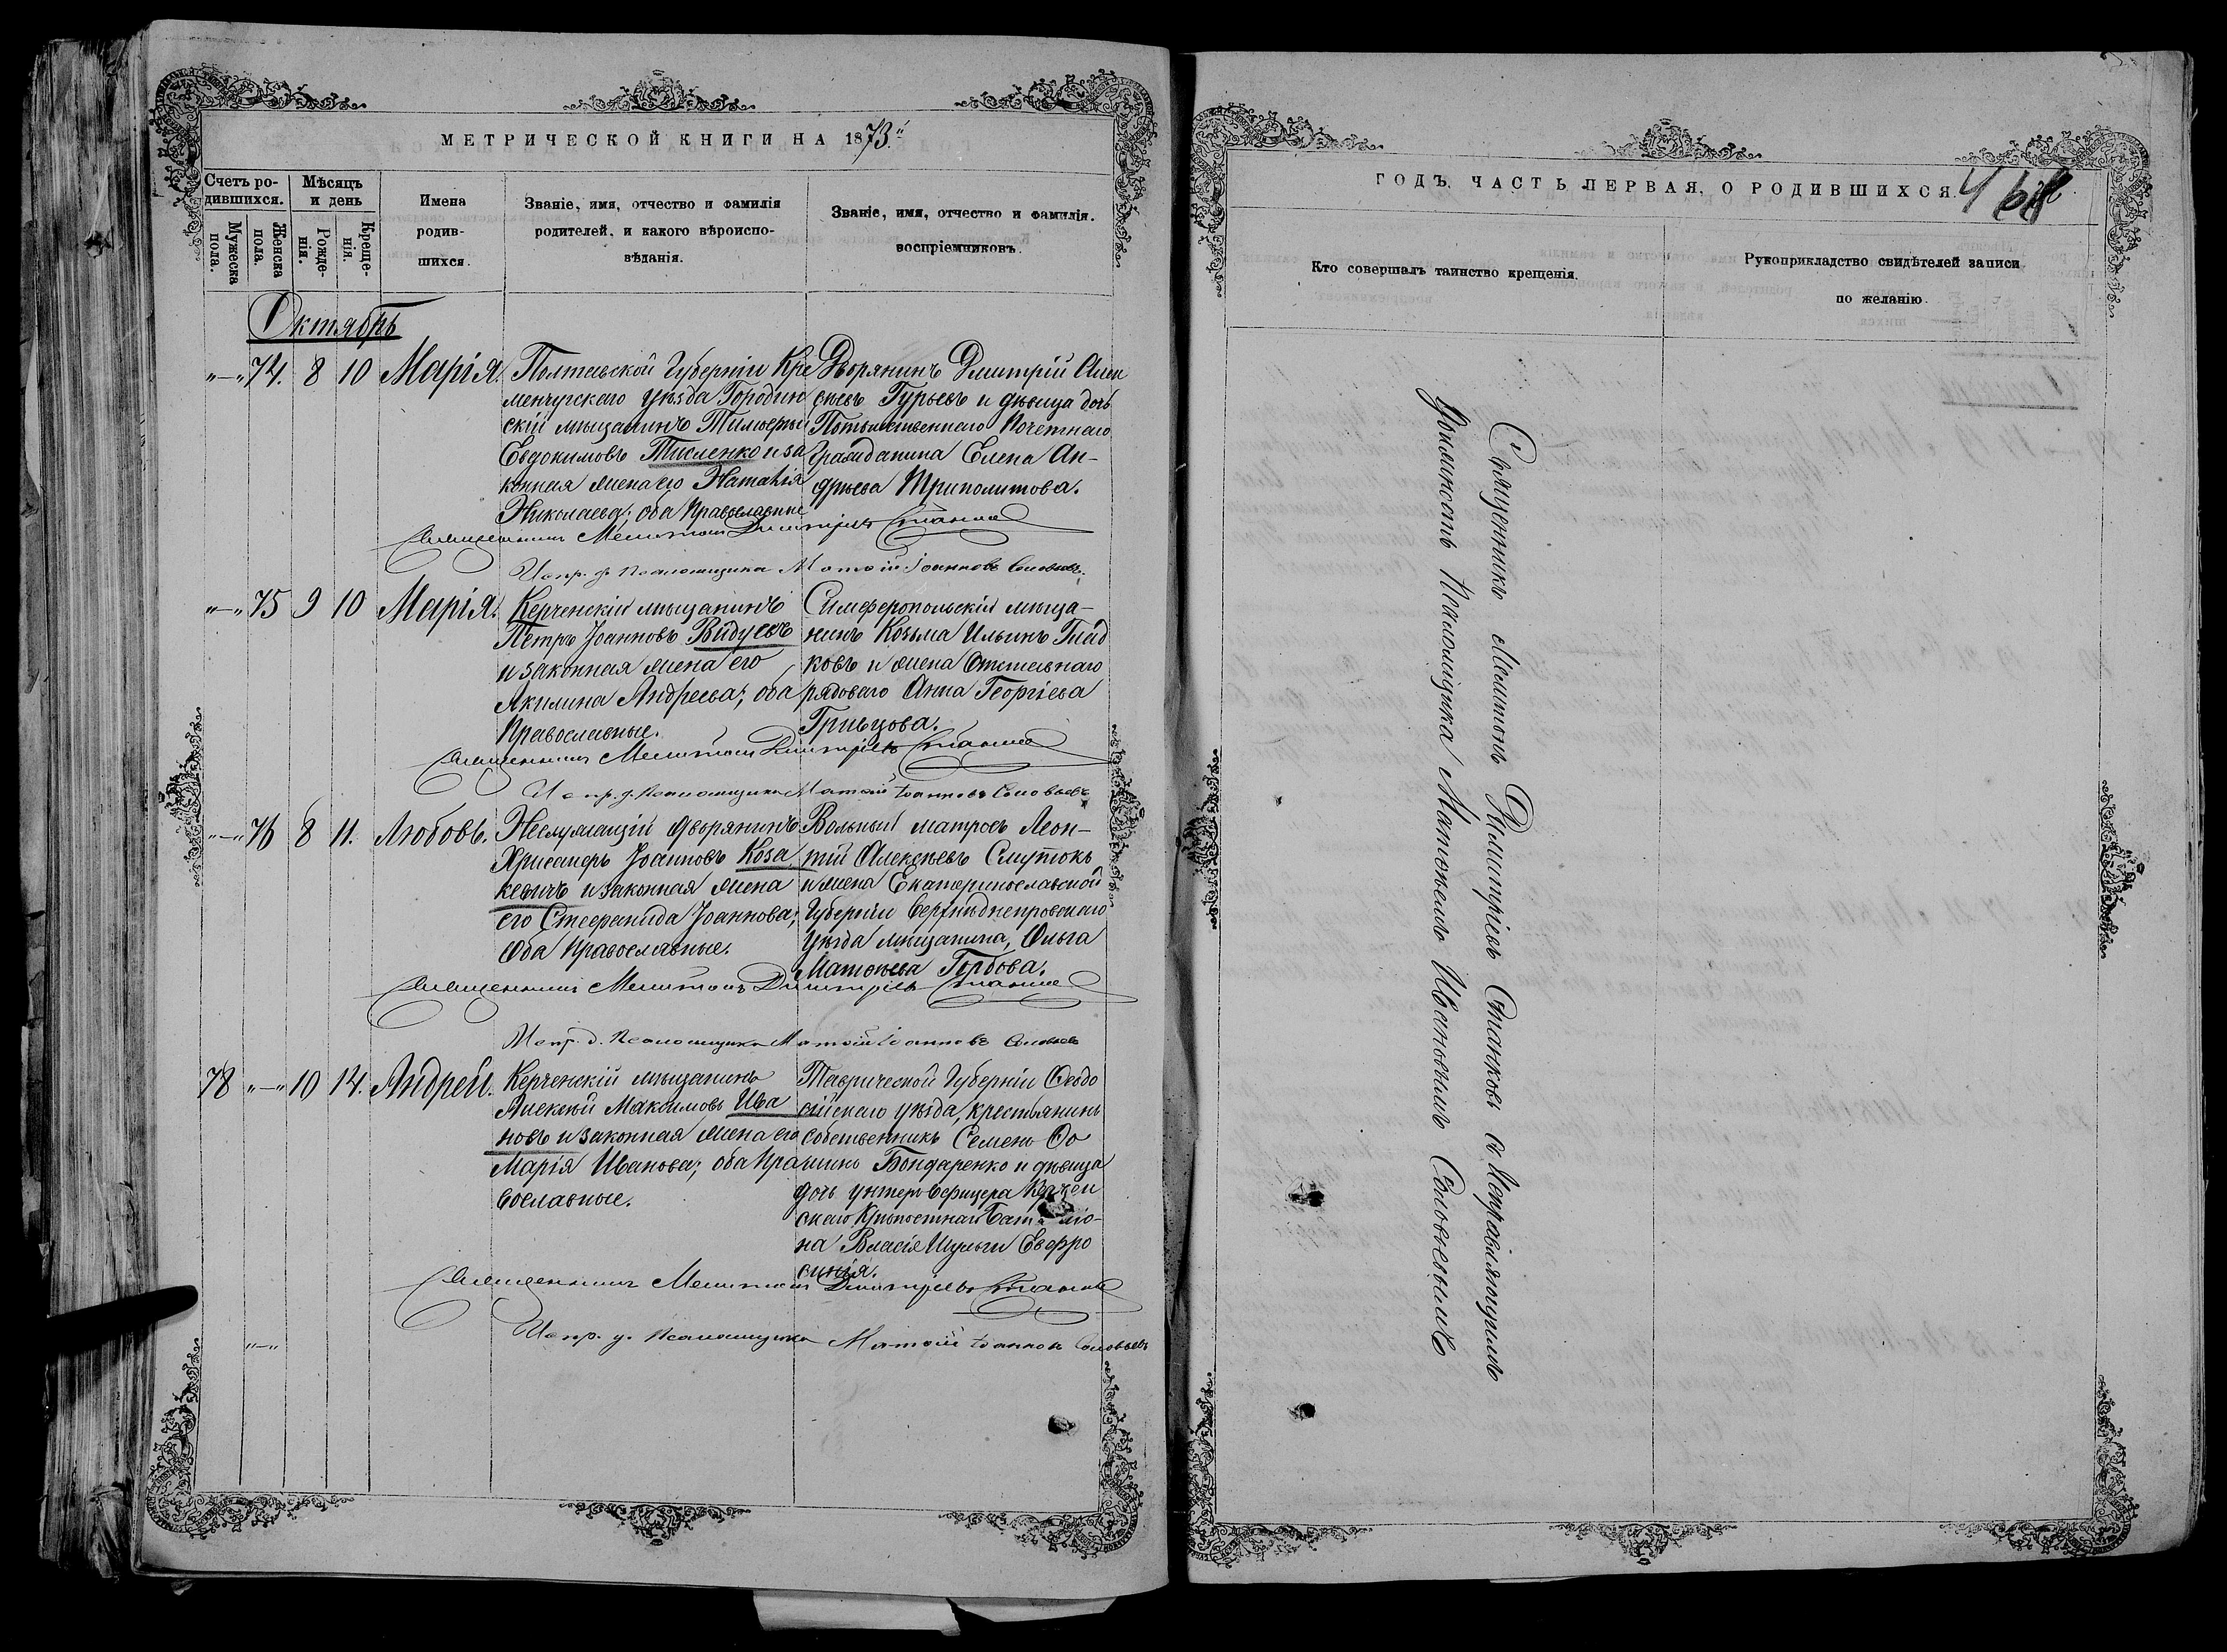 МЕТРИЧЕСКОЙ КНИГИ НА 1873й
Счетъ ро-
дившихся.
Мужеска
пола.
Женска
пола.
Мѣсяцъ
и день
Рожде-
нія.
Креще-
нія.
Имена
родив-
шихся.
Званіе, имя, отчество и фамилія
родителей, и какого вѣроиспо-
вѣданія.
Званіе, имя, отчество и фамилія.
воспріемниковъ.
Октябрь
"—" 74. 8 10 Марія.
Полтавской Губерніи Кре
менчугскаго уѣзда Городин
скій мѣщанинъ Тимофей
Евдокимовъ Тисленко и за
конная жена его Наталія
Николаева; оба Православные
Дворянинъ Дмитрій Алек
сѣевъ Гурьевъ и дѣвица дочь
Потомственнаго Почетнаго
Гражданина Елена Ан-
дреева Триполитова.
Священникъ Мелитонъ Димитріевъ Станковъ
Испр. д. Псаломщика Матѳій Іоанновъ Соловьевъ.
"—" 75 9 10 Марія.
Керченскій мѣщанинъ
Петръ Іоанновъ Видуевъ
и законная жена его
Акилина Андреева; оба
Православные.
Симферопольскій мѣща-
нинъ Козьма Ильинъ Глад
ковъ и жена Отставнаго
рядоваго Анна Георгіева
Гривцова.
Священникъ Мелитонъ Димитріевъ Станковъ
Испр. д. Псаломщика Матѳій Іоанновъ Соловьевъ
"—" 76 8 11. Любовь.
Неслужащій дворянинъ
Хрисанфъ Іоанновъ Коза
кевичъ и законная жена
его Стефанида Іоаннова;
Оба Православные.
Вольный матросъ Леон-
тій Алексѣевъ Смутокъ
и жена Екатеринославской
Губерніи Верхнѣднепровскаго
уѣзда мѣщанина, Ольга
Матѳѣева Горбова.
Священникъ Мелитонъ Димитріевъ Станковъ
Испр. д. Псаломщика Матѳій Іоанновъ Соловьевъ
78 "—" 10 14. Андрей.
Керченскій мѣщанинъ
Алексѣй Максимовъ Ива
новъ и законная жена его
Марія Иванова; оба Пра
вославные.
Таврической Губерніи Ѳеодо
сійскаго уѣзда, крестьянинъ
собственникъ Семенъ Ѳо
минъ Бондаренко и дѣвица
дочь унтеръ-Офицера Керчен
скаго Крѣпостнаго Баталіо-
на Власія Шульги Евфро
синія.
Священникъ Мелитонъ Димитріевъ Станковъ
Испр. д. Псаломщика Матѳій Іоанновъ Соловьевъ
"—"
ГОДЪ, ЧАСТЬ ПЕРВАЯ, О РОДИВШИХСЯ.
Кто совершалъ таинство крещенія.
Рукоприкладство свидѣтелей записи
по желанію.
Священникъ Мелитонъ Димитріевъ Станковъ съ Исправляющимъ
Должность Псаломщика Матѳѣемъ Ивановымъ Соловьевымъ